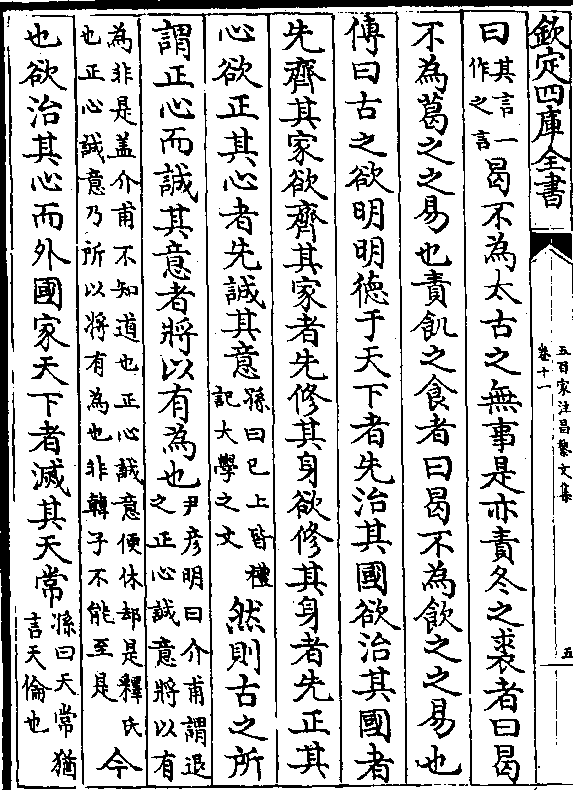 欽定四庫全書
五百家注昌黎文集
卷十一
五
曰其言一作之言曷不為太古之無事是亦責冬之裘者曰曷
不為葛之之易也責飢之食者曰曷不為飲之之易也
傳曰古之欲明明德于天下者先治其國欲治其國者
先齊其家欲齊其家者先修其身欲修其身者先正其
心欲正其心者先誠其意孫曰已上皆禮記大學之文然則古之所
謂正心而誠其意者將以有為也尹彥明曰介甫謂退之正心誠意將以有
為非是盖介甫不知道也正心誠意便休却是釋氏也正心誠意乃所以將有為也非韓子不能至是今
也欲治其心而外國家天下者滅其天常孫曰天常猶言天倫也